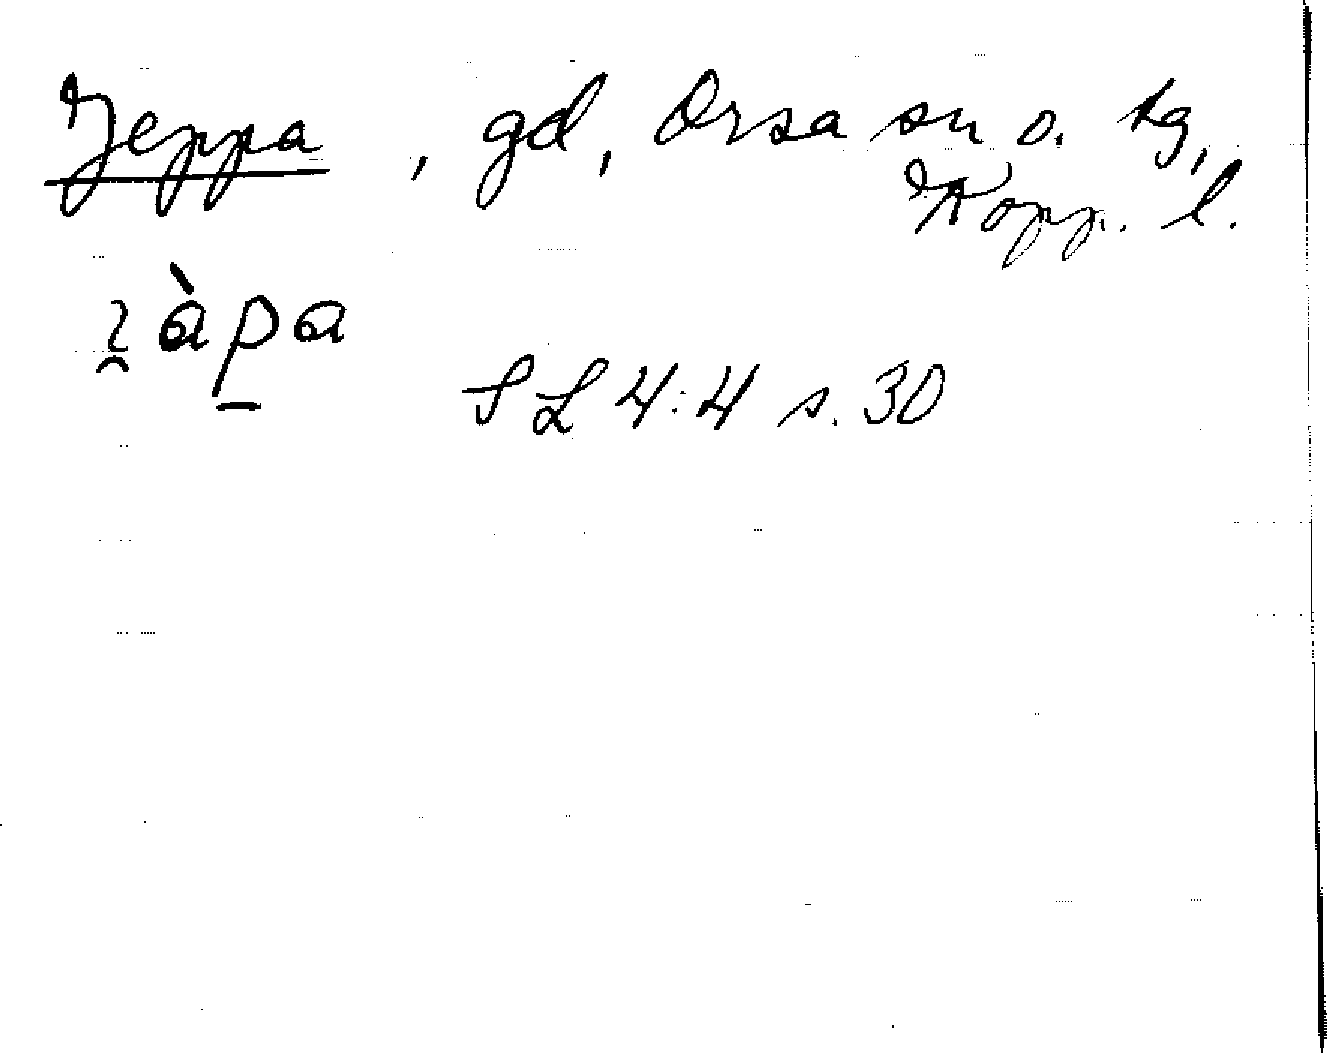 Jeppa, gd, Orsa sn o. tg,
Kopp. l.
ı̯àp̲a
SL 4:4 s. 30